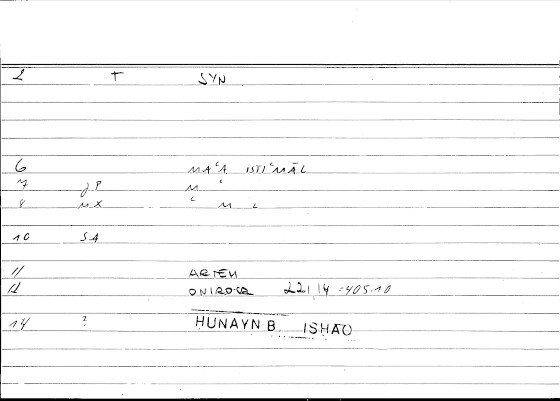 2 T SYN
6 MAʿA ISTIʿMĀL
7 gP M ʿ
8 MX ʿ M ʿ
10 SA
11 ARTEM
12 ONIROCR 221,14 = 405.10
14 ? HUNAYN B. ISHAQ